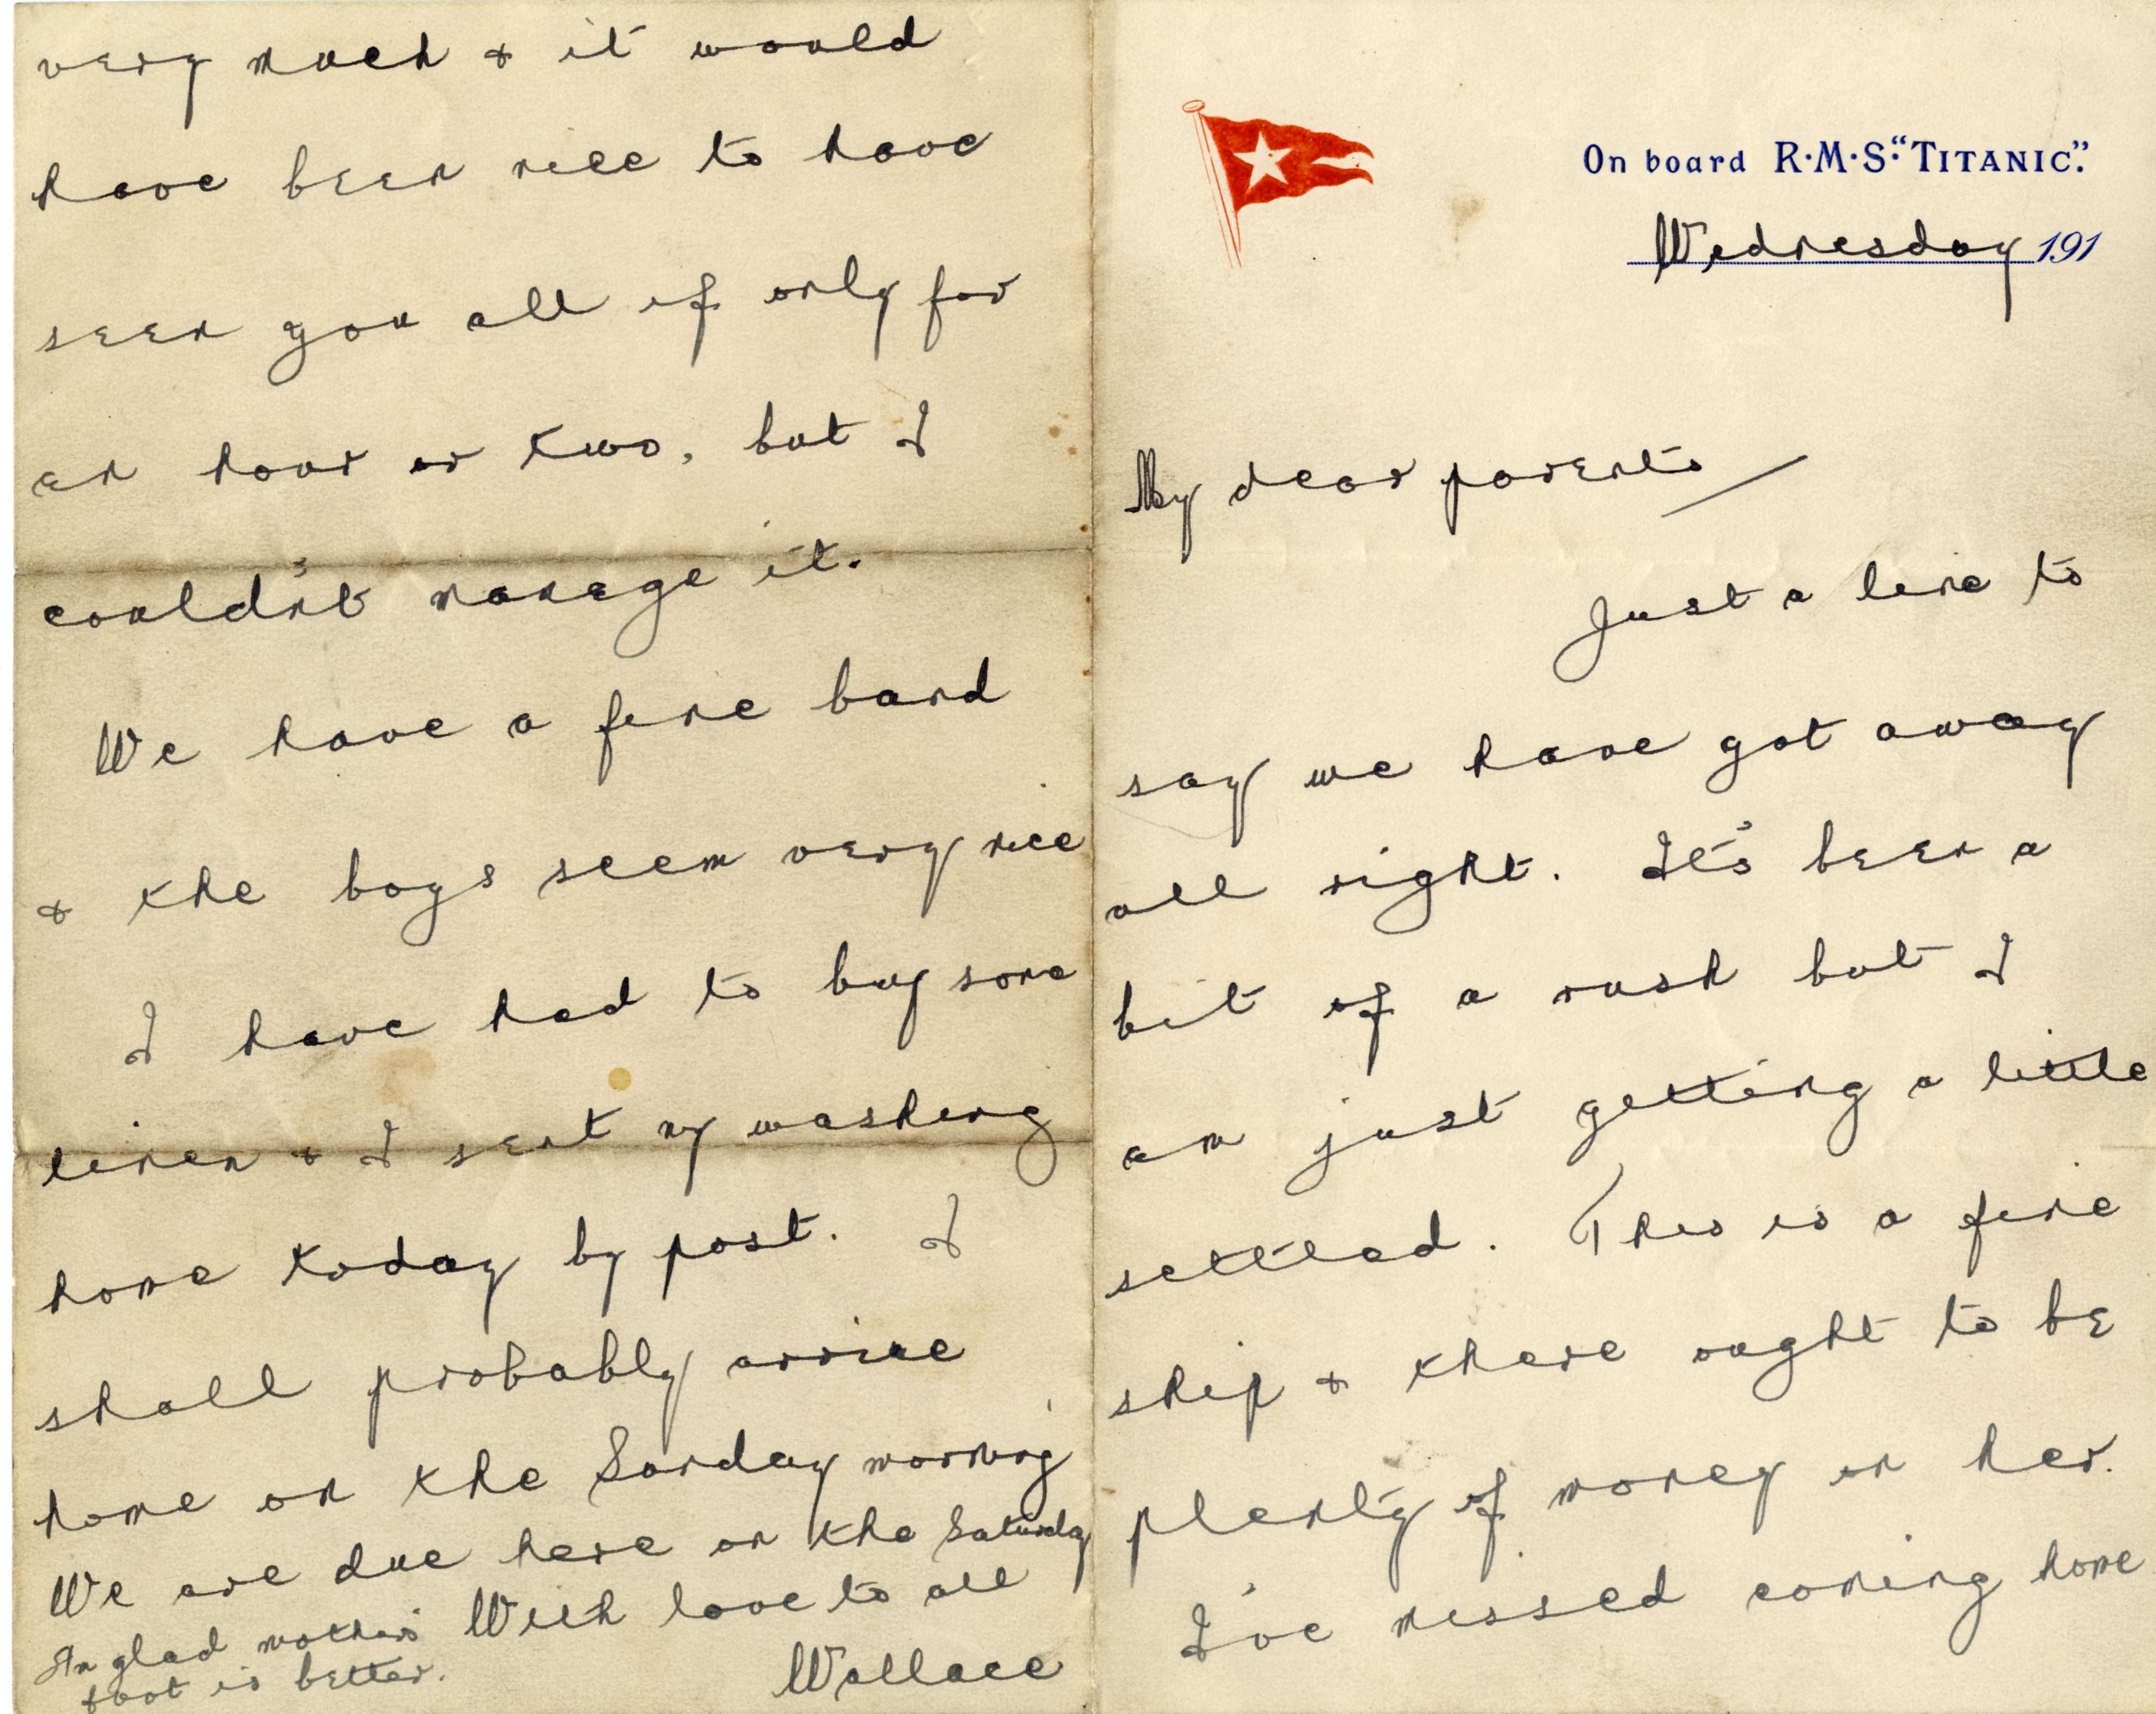 On board R·M·S· "TITANIC".
Wednesday 191
My dear parents
Just a line to
say we have got away
all right. It's been a
bit of a rush but I
am just getting a little
settled. This is a fine
ship & there ought to be
plenty of money on her.
I've missed coming home
very much & it would
have been nice to have
seen you all if only for
an hour or two, but I
couldn't manage it.
We have a fine band
& the boys seem very nice
I have had to buy some
linen & I sent my washing
home today by post. I
shall probably arrive
home on the Sunday morning
We are due here on the Saturday
With love to all
Wallace
I'm glad mother's
foot is better.